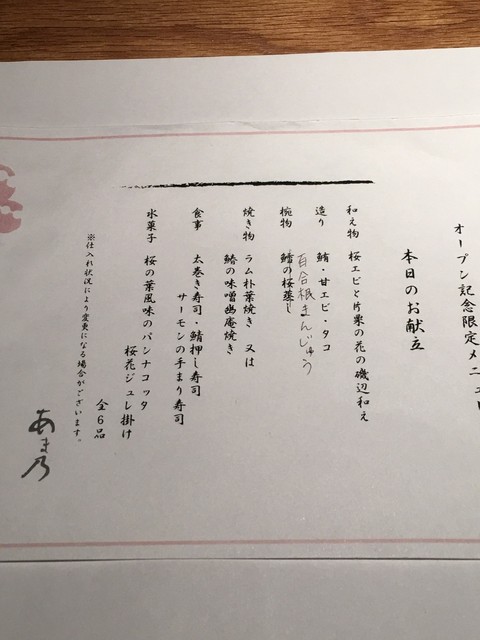 オープン記念限定メニュ
本日のお献立
和え物 桜エビと片栗の花の磯辺和え
造り 鮪・甘エビ・タコ
百合根まんじゅう
椀物 鯛の桜蒸し
焼き物 ラム朴葉焼き 又は
鰆の味噌幽庵焼き
食事 太巻き寿司・鯖押し寿司
サーモンの手まり寿司
水菓子 桜の葉風味のパンナコッタ
桜花ジュレ掛け
全6品
※仕入れ状況により変更になる場合がございます。
あま乃